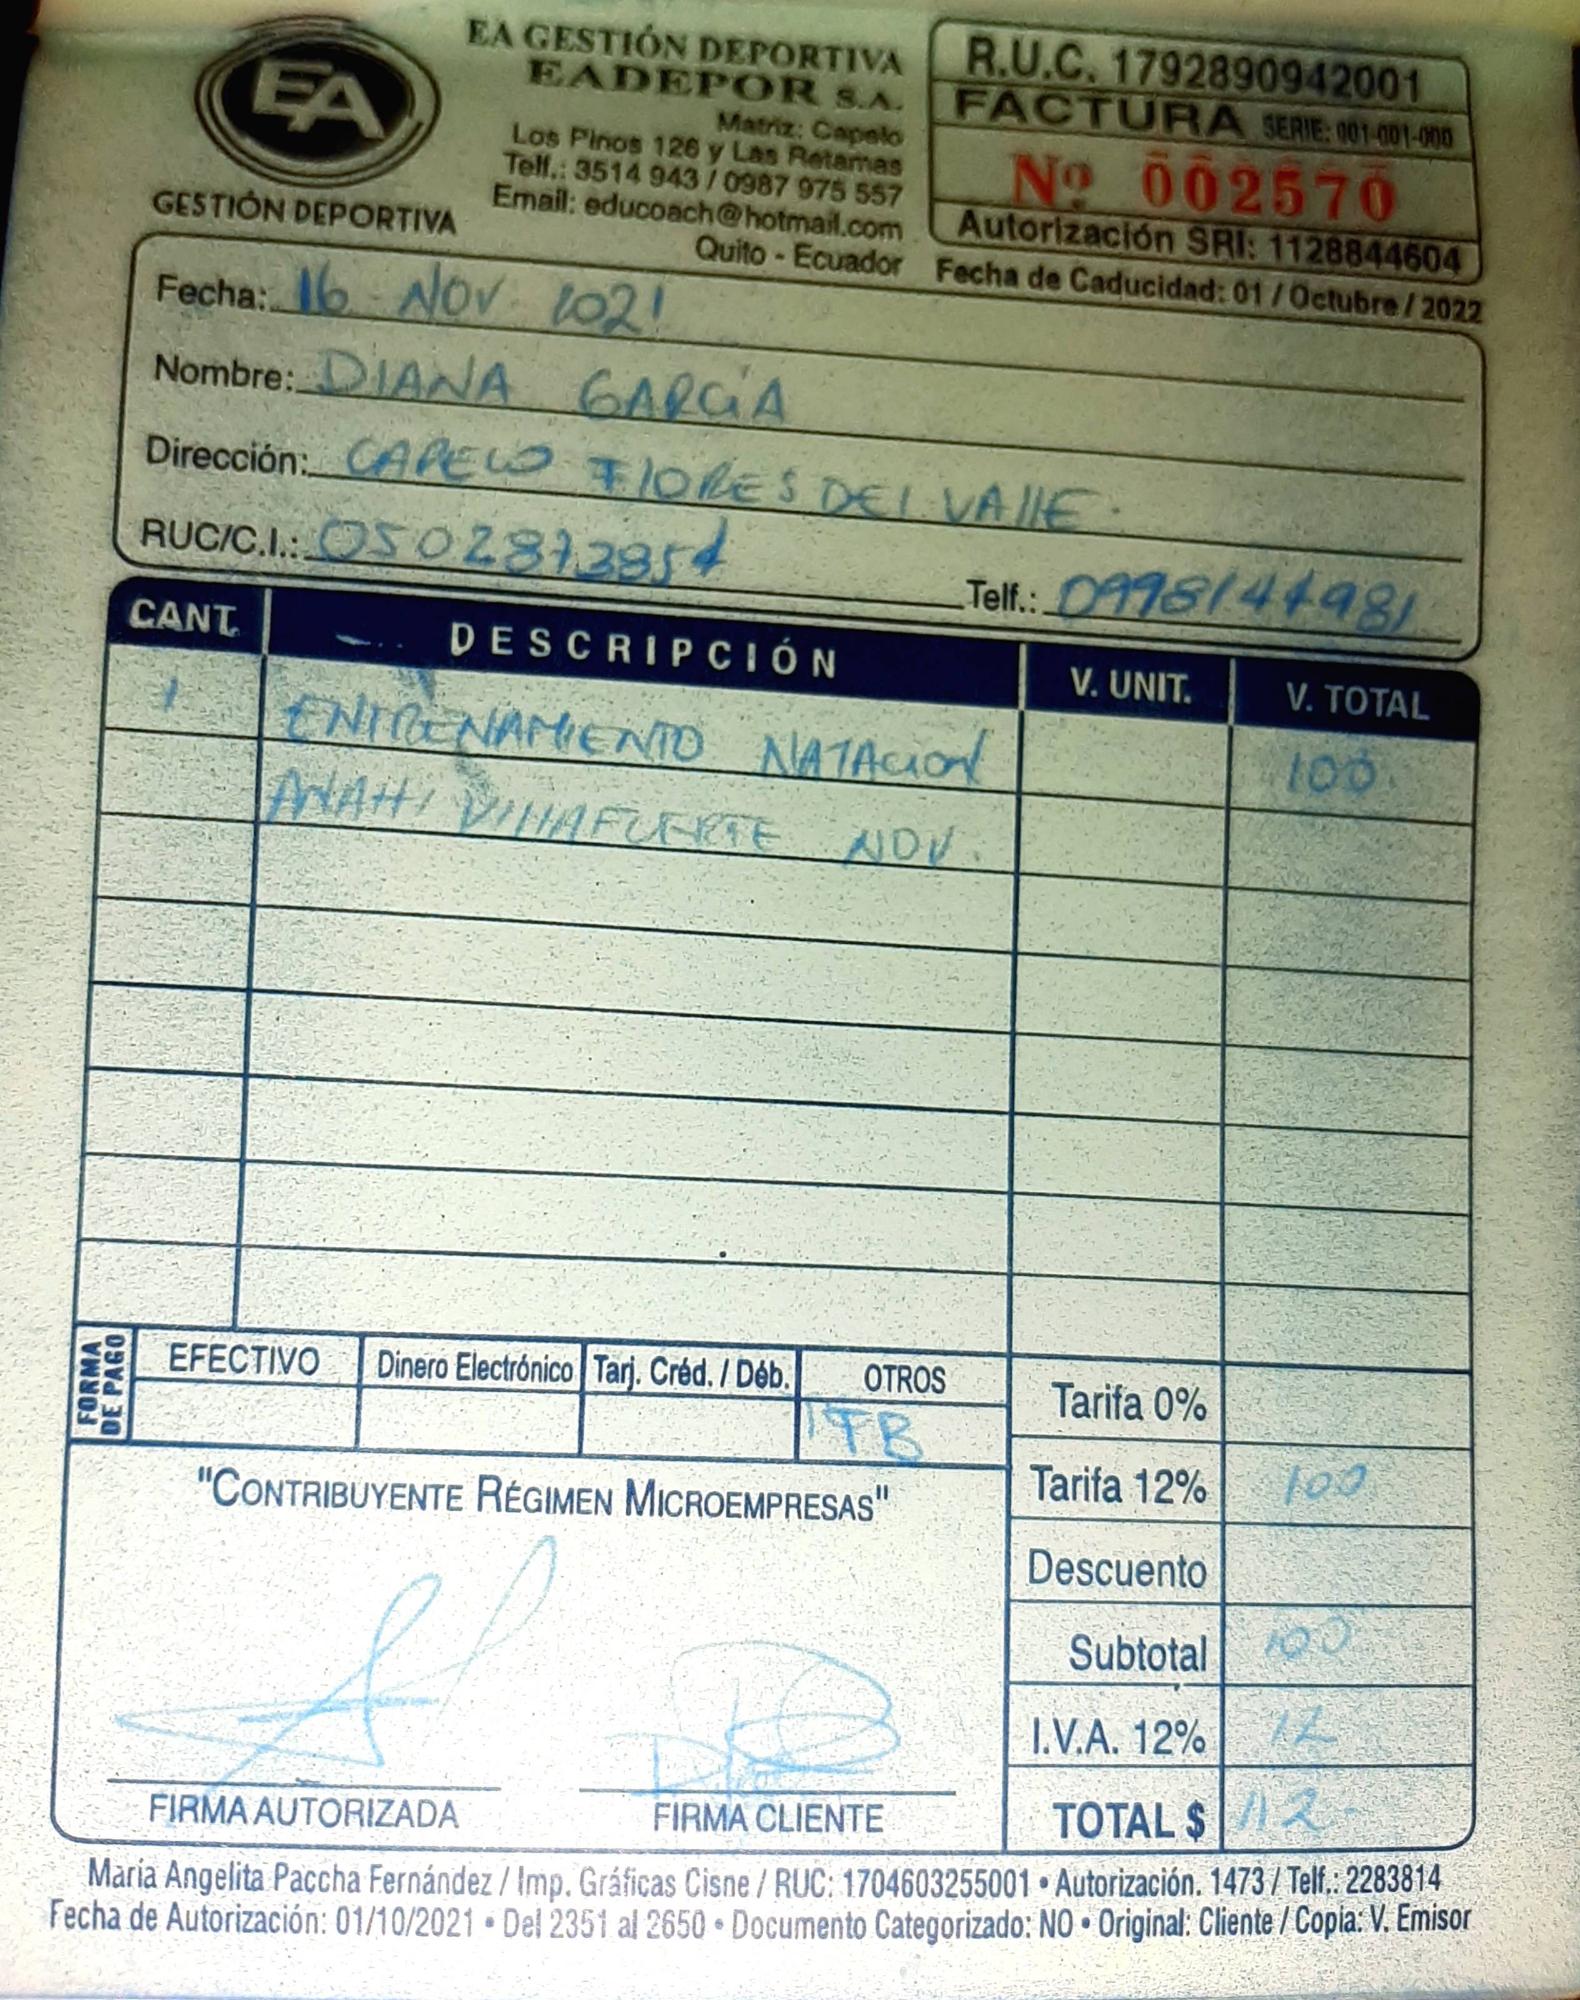 EA
GESTIÓN DEPORTIVA
EA GESTIÓN DEPORTIVA
EADEPOR S.A.
Matriz: Capelo
Los Pinos 126 y Las Retamas
Telf.: 3514 943 / 0987 975 557
Email: educoach@hotmail.com
Quito - Ecuador
R.U.C. 1792890942001
FACTURA SERIE: 001-001-000
Nº 002570
Autorización SRI: 1128844604
Fecha de Caducidad: 01 / Octubre / 2022
Fecha: 16 NOV 2021
Nombre: DIANA GARCÍA
Dirección: CAPELO FLORES DEL VALLE.
RUC/C.I.: 0502873854 Telf.: 0998144981
CANT. DESCRIPCIÓN V. UNIT. V. TOTAL
1 ENTRENAMIENTO NATACION 100
ANAHI VILLAFUERTE NOV.
FORMA DE PAGO
EFECTIVO Dinero Electrónico Tarj. Créd. / Déb. OTROS
TB
Tarifa 0%
Tarifa 12% 100
Descuento
Subtotal 100
I.V.A. 12% 12
TOTAL $ 112
"CONTRIBUYENTE RÉGIMEN MICROEMPRESAS"
FIRMA AUTORIZADA FIRMA CLIENTE
María Angelita Paccha Fernández / Imp. Gráficas Cisne / RUC: 1704603255001 • Autorización. 1473 / Telf.: 2283814
Fecha de Autorización: 01/10/2021 • Del 2351 al 2650 • Documento Categorizado: NO • Original: Cliente / Copia: V. Emisor